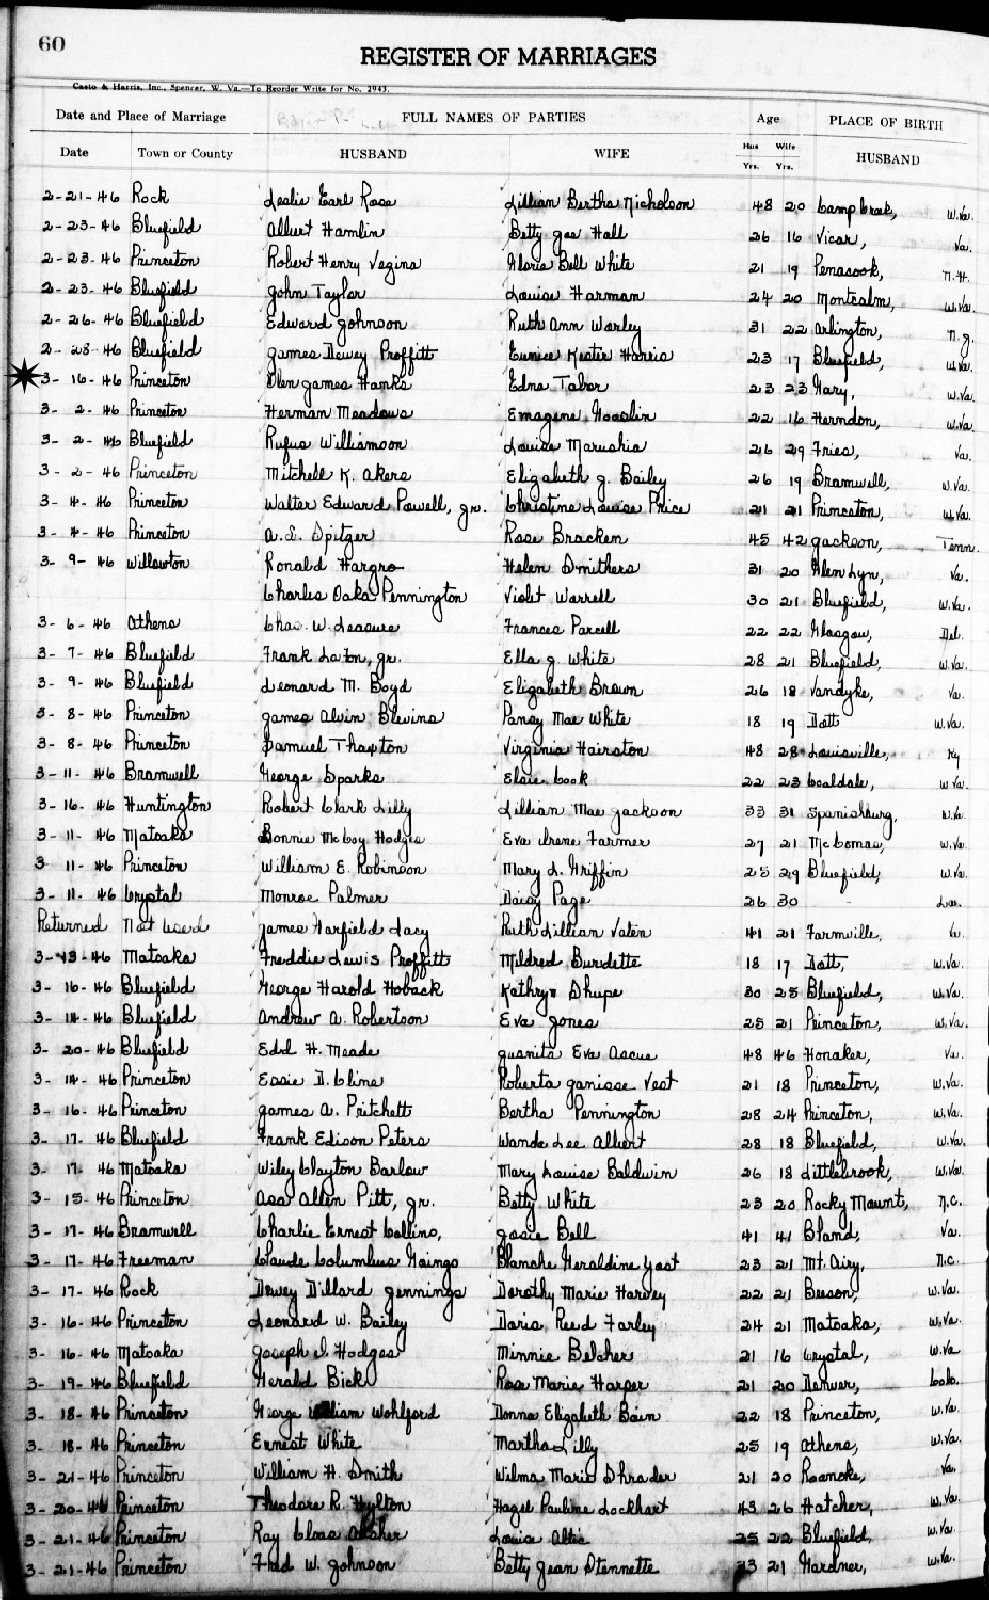 60
REGISTER OF MARRIAGES
Casto & Harris, Inc., Spencer, W. Va.—To Reorder Write for No. 2943.
Date and Place of Marriage FULL NAMES OF PARTIES Age PLACE OF BIRTH
Date Town or County HUSBAND WIFE Hus Yrs. Wife Yrs. HUSBAND
2-21-46 Rock Leslie Earl Rose Lillian Bertha Nicholson 48 20 Camp Creek, W.Va.
2-23-46 Bluefield Albert Hamlin Betty Jea Hall 26 16 Vicar, Va.
2-23-46 Princeton Robert Henry Vagina Gloria Bell White 21 19 Penacook, N.H.
2-23-46 Bluefield John Taylor Louise Harman 24 20 Montcalm, W.Va.
2-26-46 Bluefield Edward Johnson Ruth Ann Warley 31 22 Arlington, N.J.
2-28-46 Bluefield James Dewey Proffitt Eunice Kester Harris 23 17 Bluefield, W.Va.
3-16-46 Princeton Olen James Hanks Edna Tabor 23 23 Gary, W.Va.
3-2-46 Princeton Herman Meadows Emagene Gooslin 22 16 Herndon, W.Va.
3-2-46 Bluefield Rufus Williamson Louise Marushia 26 29 Fries, Va.
3-2-46 Princeton Mitchell K. Akers Elizabeth J. Bailey 26 19 Bramwell, W.Va.
3-4-46 Princeton Walter Edward Powell, Jr. Christine Louise Price 21 21 Princeton, W.Va.
3-4-46 Princeton A. L. Spitzer Rose Bracken 45 42 Jackson, Tenn.
3-9-46 Willowton Ronald Hargro Helen Smithers 31 20 Glen Lyn, Va.
Charles Oaka Pennington Violet Worrell 30 21 Bluefield, W.Va.
3-6-46 Athens Chas. W. Leasure Frances Purcell 22 22 Glasgow, Del.
3-7-46 Bluefield Frank Laton, Jr. Ella J. White 28 21 Bluefield, W.Va.
3-9-46 Bluefield Leonard M. Boyd Elizabeth Brown 26 18 Vandyke, Va.
3-8-46 Princeton James Alvin Blevins Pansy Mae White 18 19 Dott W.Va.
3-8-46 Princeton Samuel Thaxton Virginia Hairston 48 28 Louisville, Ky
3-11-46 Bramwell George Sparks Elsie Cook 22 23 Coaldale, W.Va.
3-16-46 Huntington Robert Clark Lilly Lillian Mae Jackson 33 31 Spanishburg, W.Va.
3-11-46 Matoaka Bonnie McCoy Hodges Eva Irene Farmer 27 21 McComas, W.Va.
3-11-46 Princeton William E. Robinson Mary L. Griffin 25 29 Bluefield, W.Va.
3-11-46 Crystal Monroe Palmer Daisy Page 26 30
Returned Not used James Garfield Lacy Ruth Lillian Vaten 41 21 Farmville, Va.
3-13-46 Matoaka Freddie Lewis Proffitt Mildred Burdette 18 17 Dott, W.Va.
3-16-46 Bluefield George Harold Hoback Kathryn Shupe 30 25 Bluefield, W.Va.
3-14-46 Bluefield Andrew A. Robertson Eva Jones 25 21 Princeton, W.Va.
3-20-46 Bluefield Edd H. Meade Juanita Eva Ascue 48 46 Honaker, Va.
3-14-46 Princeton Essie D. Cline Roberta Janisse Vest 21 18 Princeton, W.Va.
3-16-46 Princeton James A. Pritchett Bertha Pennington 28 24 Princeton, W.Va.
3-17-46 Bluefield Frank Edison Peters Wanda Lee Albert 28 18 Bluefield, W.Va.
3-17-46 Matoaka Wiley Clayton Barlow Mary Louise Baldwin 26 18 Littlebrook, W.Va.
3-15-46 Princeton Asa Allen Pitt, Jr. Betty White 23 20 Rocky Mount, N.C.
3-17-46 Bramwell Charlie Ernest Collins, Josie Bell 41 41 Bland, Va.
3-17-46 Freeman Claude Columbus Goings Blanche Geraldine Yost 23 21 Mt. Airy, N.C.
3-17-46 Rock Dewey Dillard Jennings Dorothy Marie Harvey 22 21 Beeson, W.Va.
3-16-46 Princeton Leonard W. Bailey Doris Reed Farley 24 21 Matoaka, W.Va.
3-16-46 Matoaka Joseph I. Hodges Minnie Belcher 21 16 Crystal, W.Va
3-19-46 Bluefield Gerald Bick Rose Marie Harper 21 20 Denver, Colo.
3-18-46 Princeton George William Wohlford Donna Elizabeth Bain 22 18 Princeton, W.Va.
3-18-46 Princeton Ernest White Martha Lilly 25 19 Athens, W.Va.
3-21-46 Princeton William H. Smith Wilma Marie Shrader 21 20 Roanoke, Va.
3-20-46 Princeton Theodore R. Hylton Hazel Pauline Lockhart 43 26 Hatcher, W.Va.
3-21-46 Princeton Ray Cloas Louise 25 22 Bluefield, W.Va.
3-21-46 Princeton Fred W. Johnson Betty Jean Stennette 23 21 Gardner, W.Va.